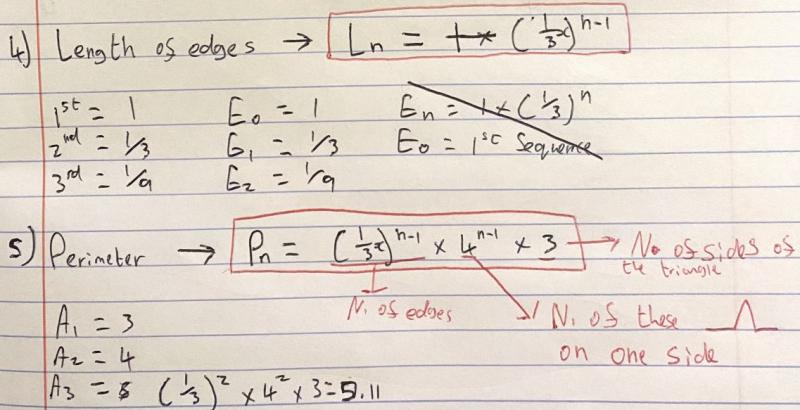 4) Length of edges → Ln = 1 × (1/3 x)^n-1
1st = 1 E0 = 1 En = 1 × (1/3)^n
2nd = 1/3 E1 = 1/3 E0 = 1st Sequence
3rd = 1/9 E2 = 1/9
5) Perimeter → Pn = (1/3 x)^n-1 × 4^n-1 × 3 → No of sides of
the triangle
N. of edges
N. of these
on one side
A1 = 3
A2 = 4
A3 = (1/3)^2 × 4^2 × 3 = 5.11